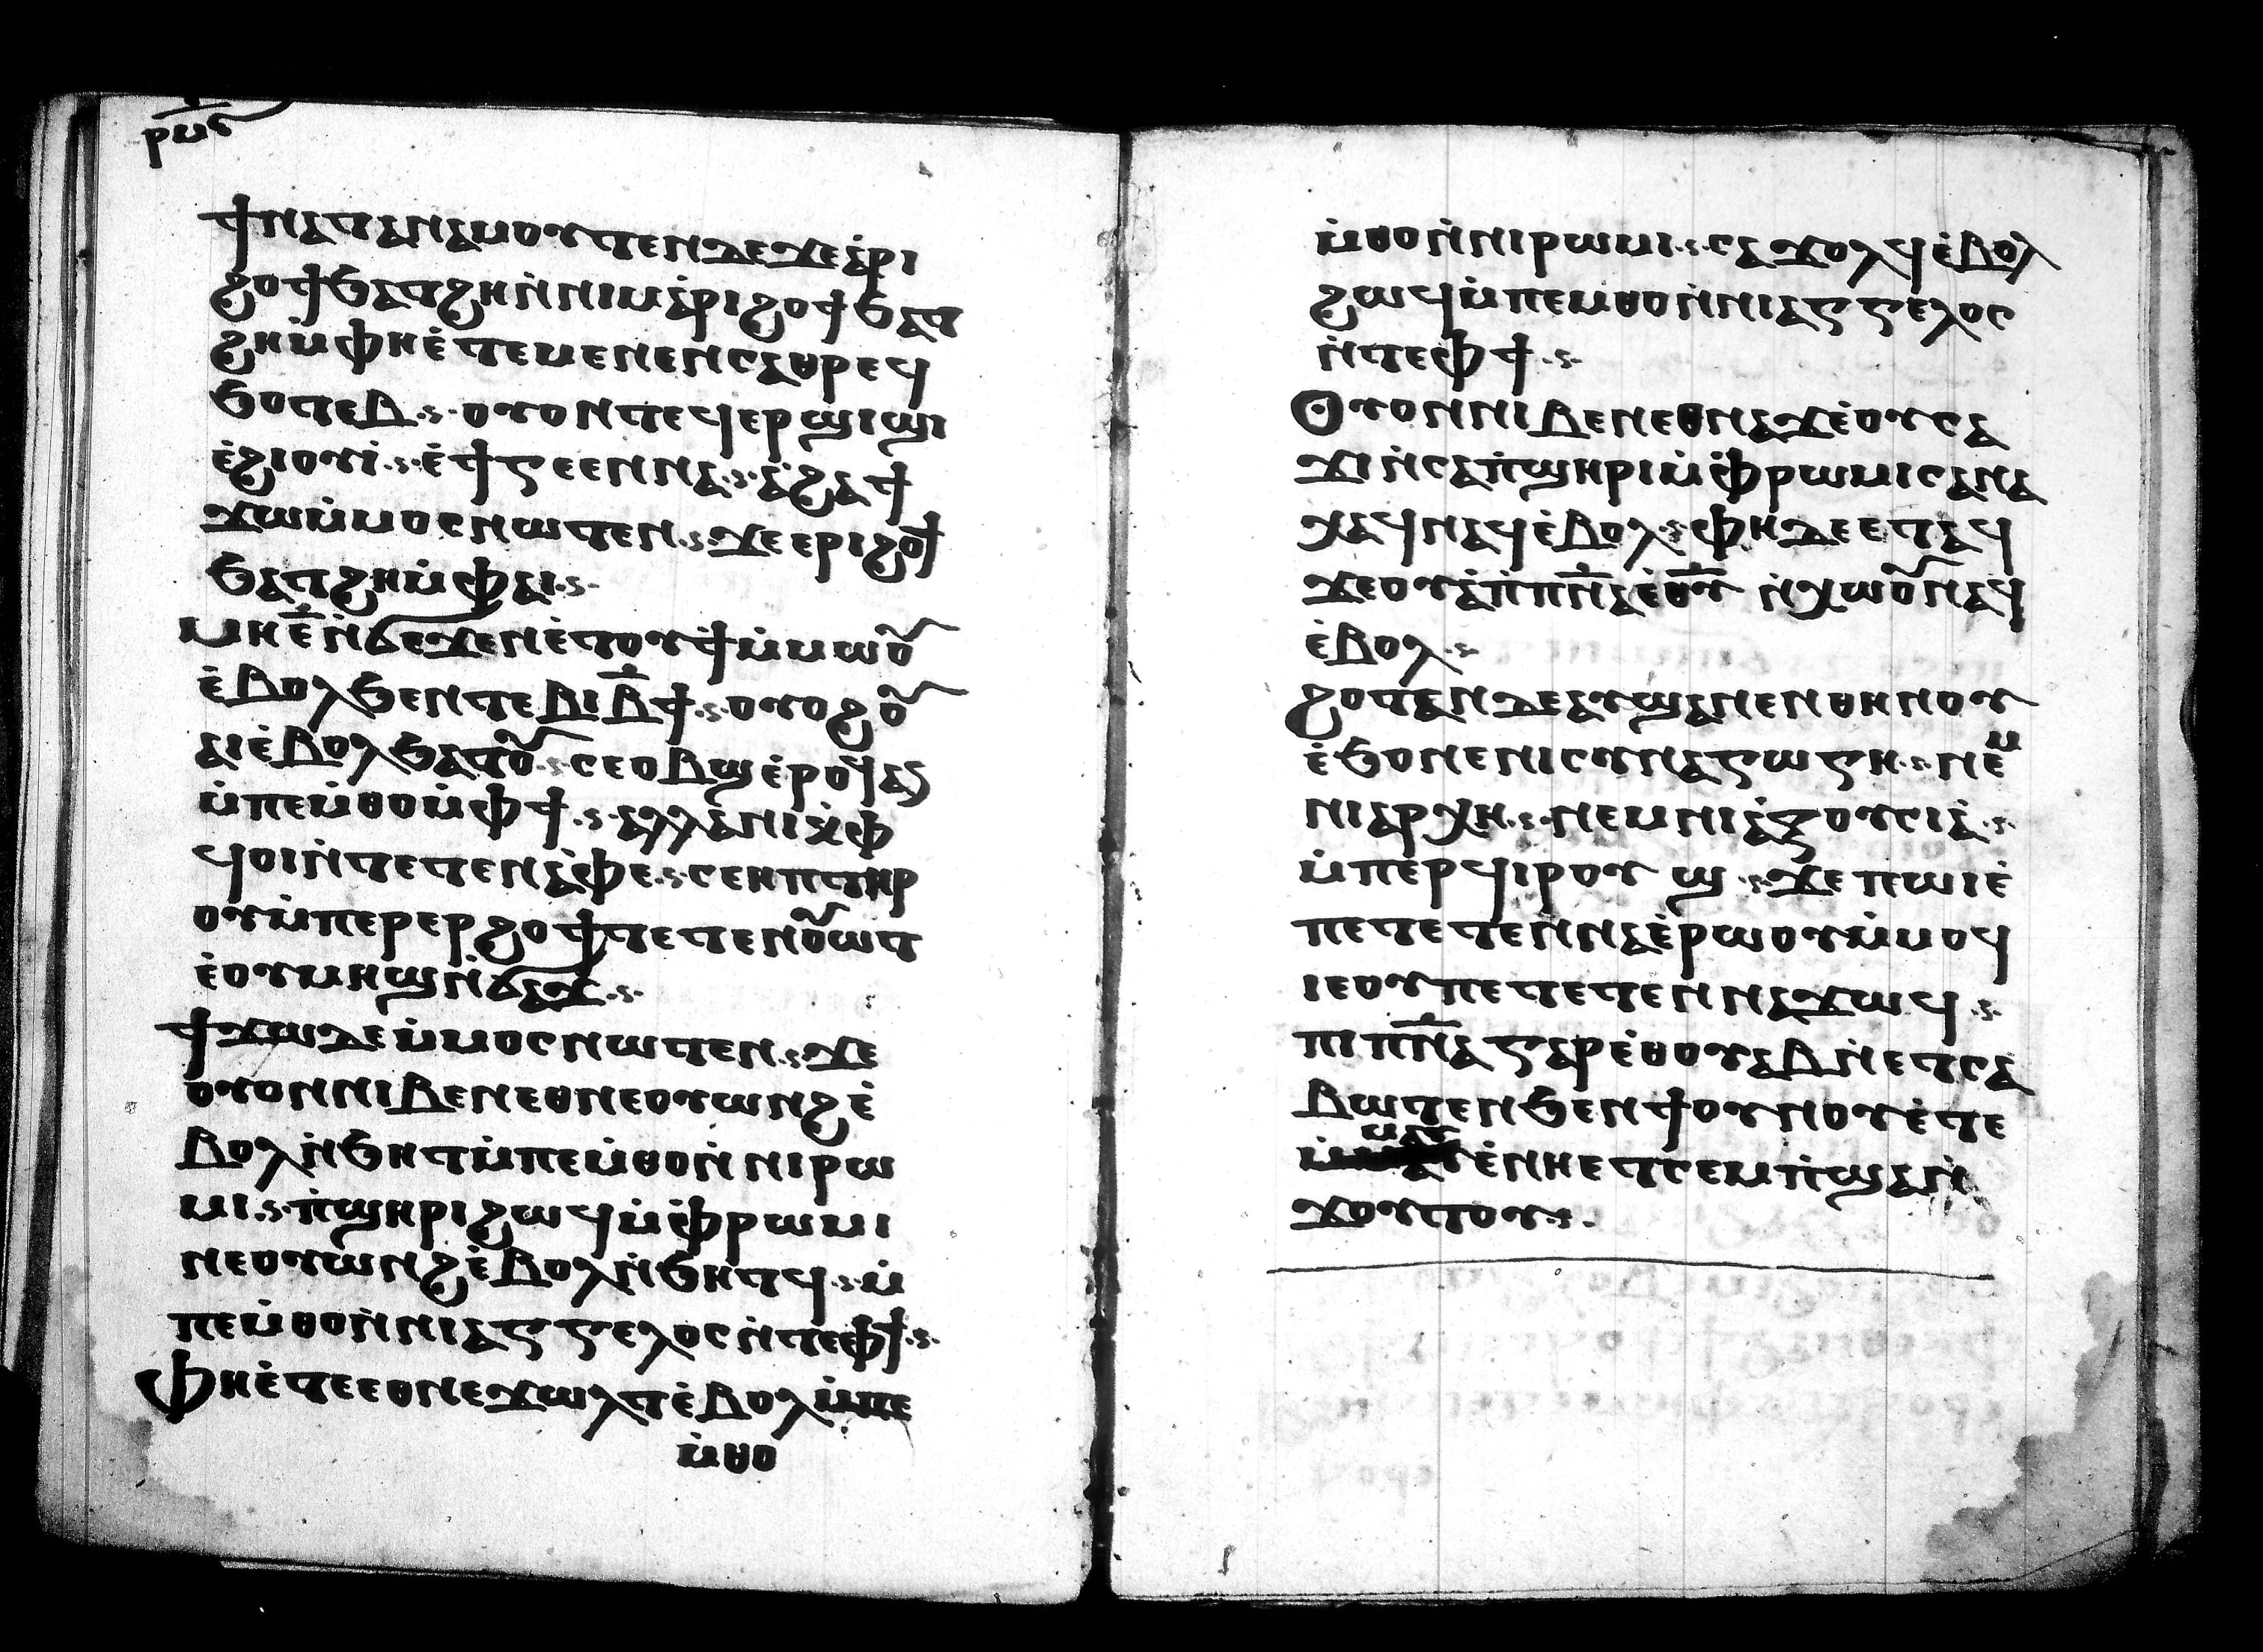 ⲣⲙⲋ
ϯⲛⲁⲧⲁⲛⲁⲙⲟⲩⲧⲉⲛⲇⲉϫⲉⲁ̇ⲣⲓ
ϩⲟϯϧⲁⲧϩⲏⲛ̇ⲛⲓⲙⲁ̇ⲣⲓϩⲟϯϧⲁⲧ
ϩⲏⲙ̇ⲫⲏⲉ̇ⲧⲉⲙⲉⲛⲉⲛⲥⲁⲑⲣⲉϥ
ϧⲟⲧⲉⲃ·ⲟⲩⲟⲛⲧⲉϥⲉⲣϣⲓϣⲓ
ⲉ̇ϩⲓⲟⲩⲓ̇·ⲉ̇ϯⲅⲉⲉⲛⲛⲁ·ⲁ̇ϩⲁϯ
ϫⲱⲙ̇ⲙⲟⲥⲛⲱⲧⲉⲛ·ϫⲉⲉⲣⲓϩⲟϯ
ϧⲁⲧϩⲏⲙ̇ⲫⲁⲓ·
ⲙⲏⲉ̅ⲛ̇ϭⲉϫⲉⲛⲉ̇ⲧⲟⲩϯⲙ̇ⲙⲱⲟ̃
ⲉ̇ⲃⲟⲗϧⲉⲛⲧⲉⲃⲓⲃ̅ϯ·ⲟⲩⲟϩⲟ̃
ⲁⲓⲉ̇ⲃⲟⲗϧⲁⲧⲟ̃·ⲥⲉⲟⲃϣⲉ̇ⲣⲟϥⲁⲛ
ⲙ̇ⲡⲉⲙ̇ⲑⲟⲙ̇ⲫϯ·ⲁⲗⲗⲁⲛⲓⲭ̇ⲫ
ϥⲟⲓⲛ̇ⲧⲉⲧⲉⲛⲁ̇ⲫⲉ·ⲥⲉⲏⲡⲧⲏⲣ
ⲟⲩⲙ̇ⲡⲉⲣⲉⲣϩⲟϯⲧⲉⲧⲉⲛⲟ̃ⲱⲧ
ⲉ̇ⲟⲩⲙⲏϣⲛ̇ϭⲁϫ·
ϯϫⲱⲇⲉⲙ̇ⲙⲟⲥⲛⲱⲧⲉⲛ·ϫⲉ
ⲟⲩⲟⲛⲛⲓⲃⲉⲛⲉⲑⲛⲉⲟⲩⲱⲛϩⲉ̇
ⲃⲟⲗⲛ̇ϧⲏⲧⲙ̇ⲡⲉⲙ̇ⲑⲟⲛ̇ⲛⲓⲣⲱ
ⲙⲓ·ⲡ̇ϣⲏⲣⲓϩⲱϥⲙ̇ⲫ̇ⲣⲱⲙⲓ
ⲛⲉⲟⲩⲱⲛϩⲉ̇ⲃⲟⲗⲛ̇ϧⲏⲧϥ·ⲙ̇
ⲡⲉⲙ̇ⲑⲟⲛ̇ⲛⲓⲁⲅⲅⲉⲗⲟⲥⲛ̇ⲧⲉⲫϯ·
ⲫⲏⲉ̇ⲧⲉⲉⲑⲛⲉϫⲱⲗⲧⲉ̇ⲃⲟⲗⲙ̇ⲡⲉ
ⲙ̇ⲑⲟ
ⲙ̇ⲑⲟⲛ̇ⲛⲓⲣⲱⲙⲓ·ⲥⲁϫⲟⲗϥⲉ̇ⲃⲟⲗ
ϩⲱϥⲙ̇ⲡⲉⲙⲑⲟⲛ̇ⲛⲓⲁⲅⲅⲉⲗⲟⲥ
ⲛ̇ⲧⲉⲫϯ·
ⲟⲩⲟⲛⲛⲓⲃⲉⲛⲉⲑⲛⲁϫⲉ̇ⲟⲩⲥⲁ
ϫⲓⲛ̇ⲥⲁⲡ̇ϣⲏⲣⲓⲙ̇ⲫ̇ⲣⲱⲙⲓⲥⲁⲛⲁ
ⲭⲁϥⲛⲁϥⲉ̇ⲃⲟⲗ·ⲫⲏⲇⲉⲉⲧⲁϥ
ϫⲉⲟⲩⲁ̇ⲡ̇ⲡ̅ⲛ̅ⲁⲉ̇ⲑ̅ⲩ̅ ⲛ̇ⲭⲱⲟ̃ⲛⲁϥ
ⲉ̇ⲃⲟⲗ·
ϩⲟⲧⲁⲛⲇⲉⲁⲩϣⲁⲛⲉⲛⲑⲏⲛⲟⲩ
ⲉ̇ϧⲟⲛⲉⲛⲓⲥⲩⲛⲁⲅⲱⲅⲏ·ⲛⲉⲙ
ⲛⲓⲁⲣⲭⲏ·ⲛⲉⲙⲛⲓⲁ̇ⲝⲟⲩⲥⲓⲁ̇·
ⲙ̇ⲡⲉⲣϥⲓⲣⲟⲩϣ·ϫⲉⲡⲱⲓⲉ̇
ⲡⲉⲧⲉⲧⲉⲛⲛⲁⲉ̇ⲣⲱⲟⲩⲙ̇ⲙⲟϥ
ⲓⲉⲟⲩⲡⲉⲧⲉⲧⲉⲛⲛⲁϫⲱϥ·
ⲡⲓⲡ̅ⲛ̅ⲁⲅⲁⲣⲉ̇ⲑⲟⲩⲁⲃⲛ̇ⲉⲧⲥⲁ
ⲃⲱⲧⲉⲛϧⲉⲛϯⲟⲩⲛⲟⲩⲉ̇ⲧⲉ
ⲙ̇ⲙⲁⲩⲉ̇ⲛⲏⲉⲧⲥⲉⲙⲡ̇ϣⲁⲛ̇
ϫⲟⲩⲧⲟⲩ·